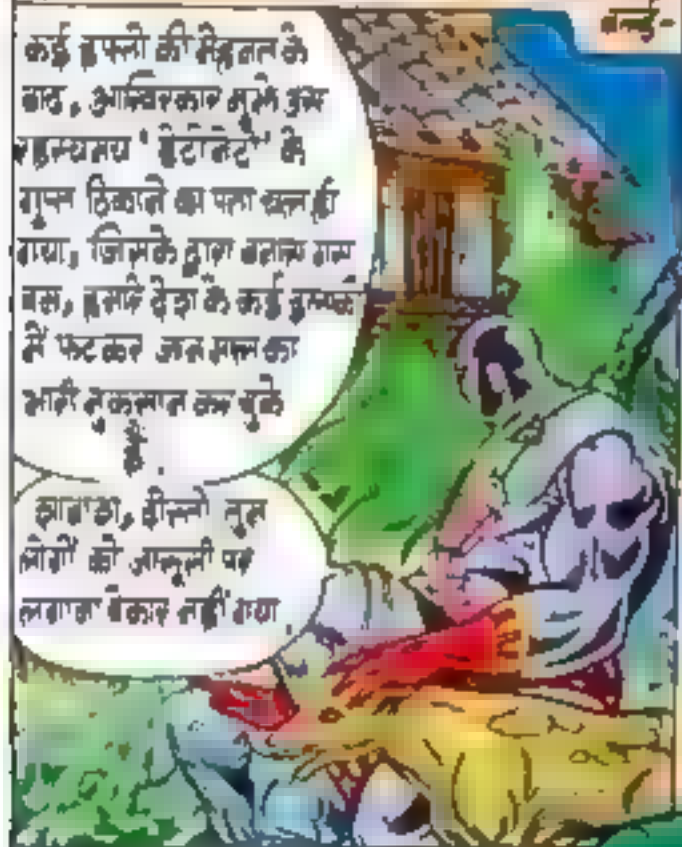 कई हफ्तों की मेहनत के
बाद, आखिरकार मुझे उस
रहस्यमय ' डेटोनेटो ' के
गुप्त ठिकाने का पता चल ही
गया, जिसके द्वारा बनाए गए
बम, हमारे देश के कई इलाकों
में फटकर जानमाल का
भारी नुकसान कर चुके
हैं.
शाबाश, दोस्तो तुम
लोगों को जासूसी पर
लगाना बेकार नहीं गया